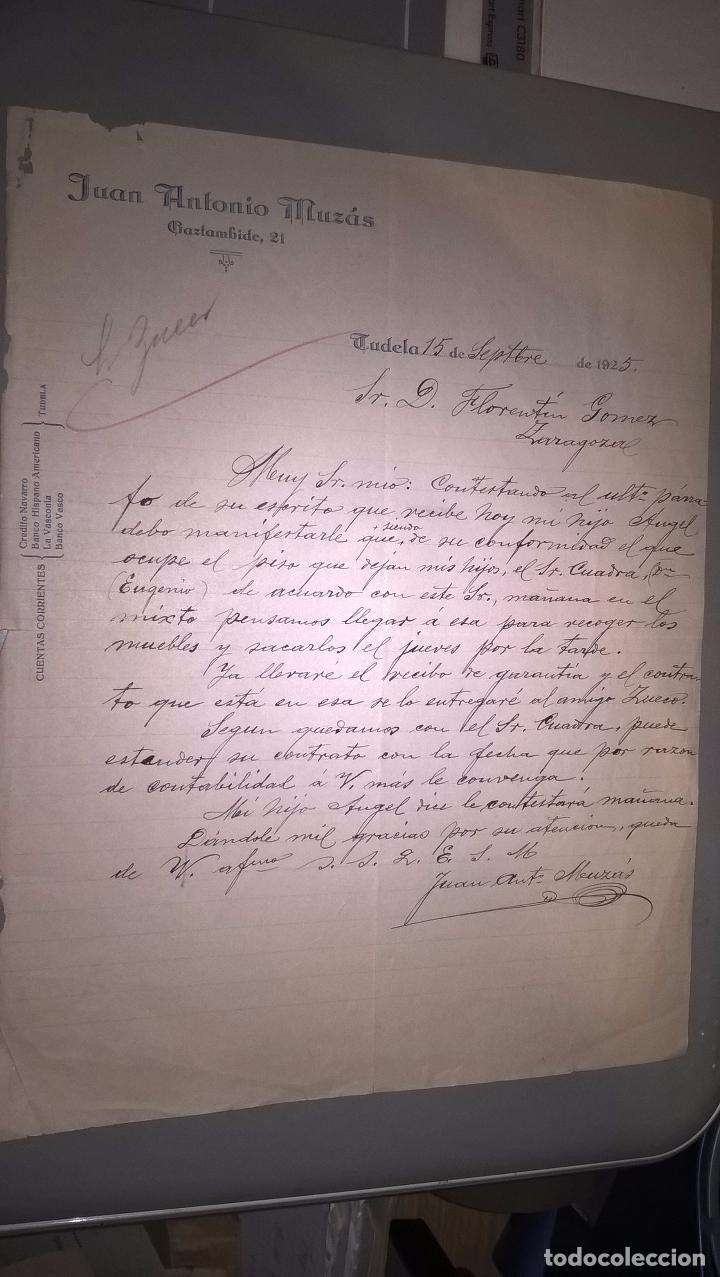 Juan Antonio Muzás
Gaztambide, 21
Tudela 15 de Septbre de 1925.
Sr. D. Florentín Gomez
Zaragoza
CUENTAS CORRIENTES
Credito Navarro
Banco Hispano Americano
La Vasconia
Banco Vasco
TUDELA
Muy Sr. mio: Contestando al ultº párra
fo de su escrito que recibe hoy mi hijo Angel
debo manifestarle que, siendo de su conformidad el que
ocupe el piso que dejan mis hijos, el Sr. Cuadra,
(Eugenio) de acuardo con este Sr., mañana en el
mixto pensamos llegar á esa para recoger los
muebles y sacarlos el jueves por la tarde.
Ya llevaré el recibo de garantía y el contra-
to que está en esa se lo entregaré al amigo Zueco.
Segun quedamos con el Sr. Cuadra, puede
estender su contrato con la fecha que por razon
de contabilidad á V. más le convenga.
Mi hijo Angel dice le contestará mañana.
Dándole mil gracias por su atencion, queda
de V. afmo s. s. q. E. S. M
Juan Antº Muzás
todocoleccion